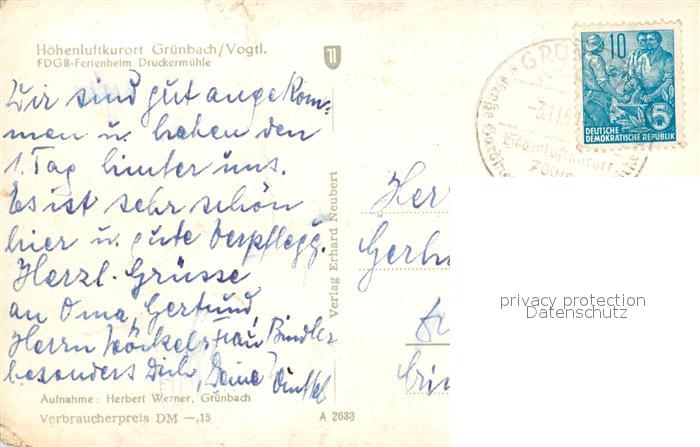 Höhenluftkurort Grünbach/Vogtl.
FDGB-Ferienheim Druckermühle
Wir sind gut angekom-
men u. haben den
1. Tag hinter uns.
Es ist sehr schön
hier u. gute Verpflegg.
Herzl. Grüsse
an Oma, Gertrud,
Herrn Höckel, Frau Bindler
besonders Dich, Deine
Aufnahme: Herbert Werner, Grünbach
Verbraucherpreis DM —,15
A 2633
Verlag Erhard Neubert
Höhenluftkurort
10
5
DEUTSCHE
DEMOKRATISCHE REPUBLIK
Her
privacy protection
Datenschutz